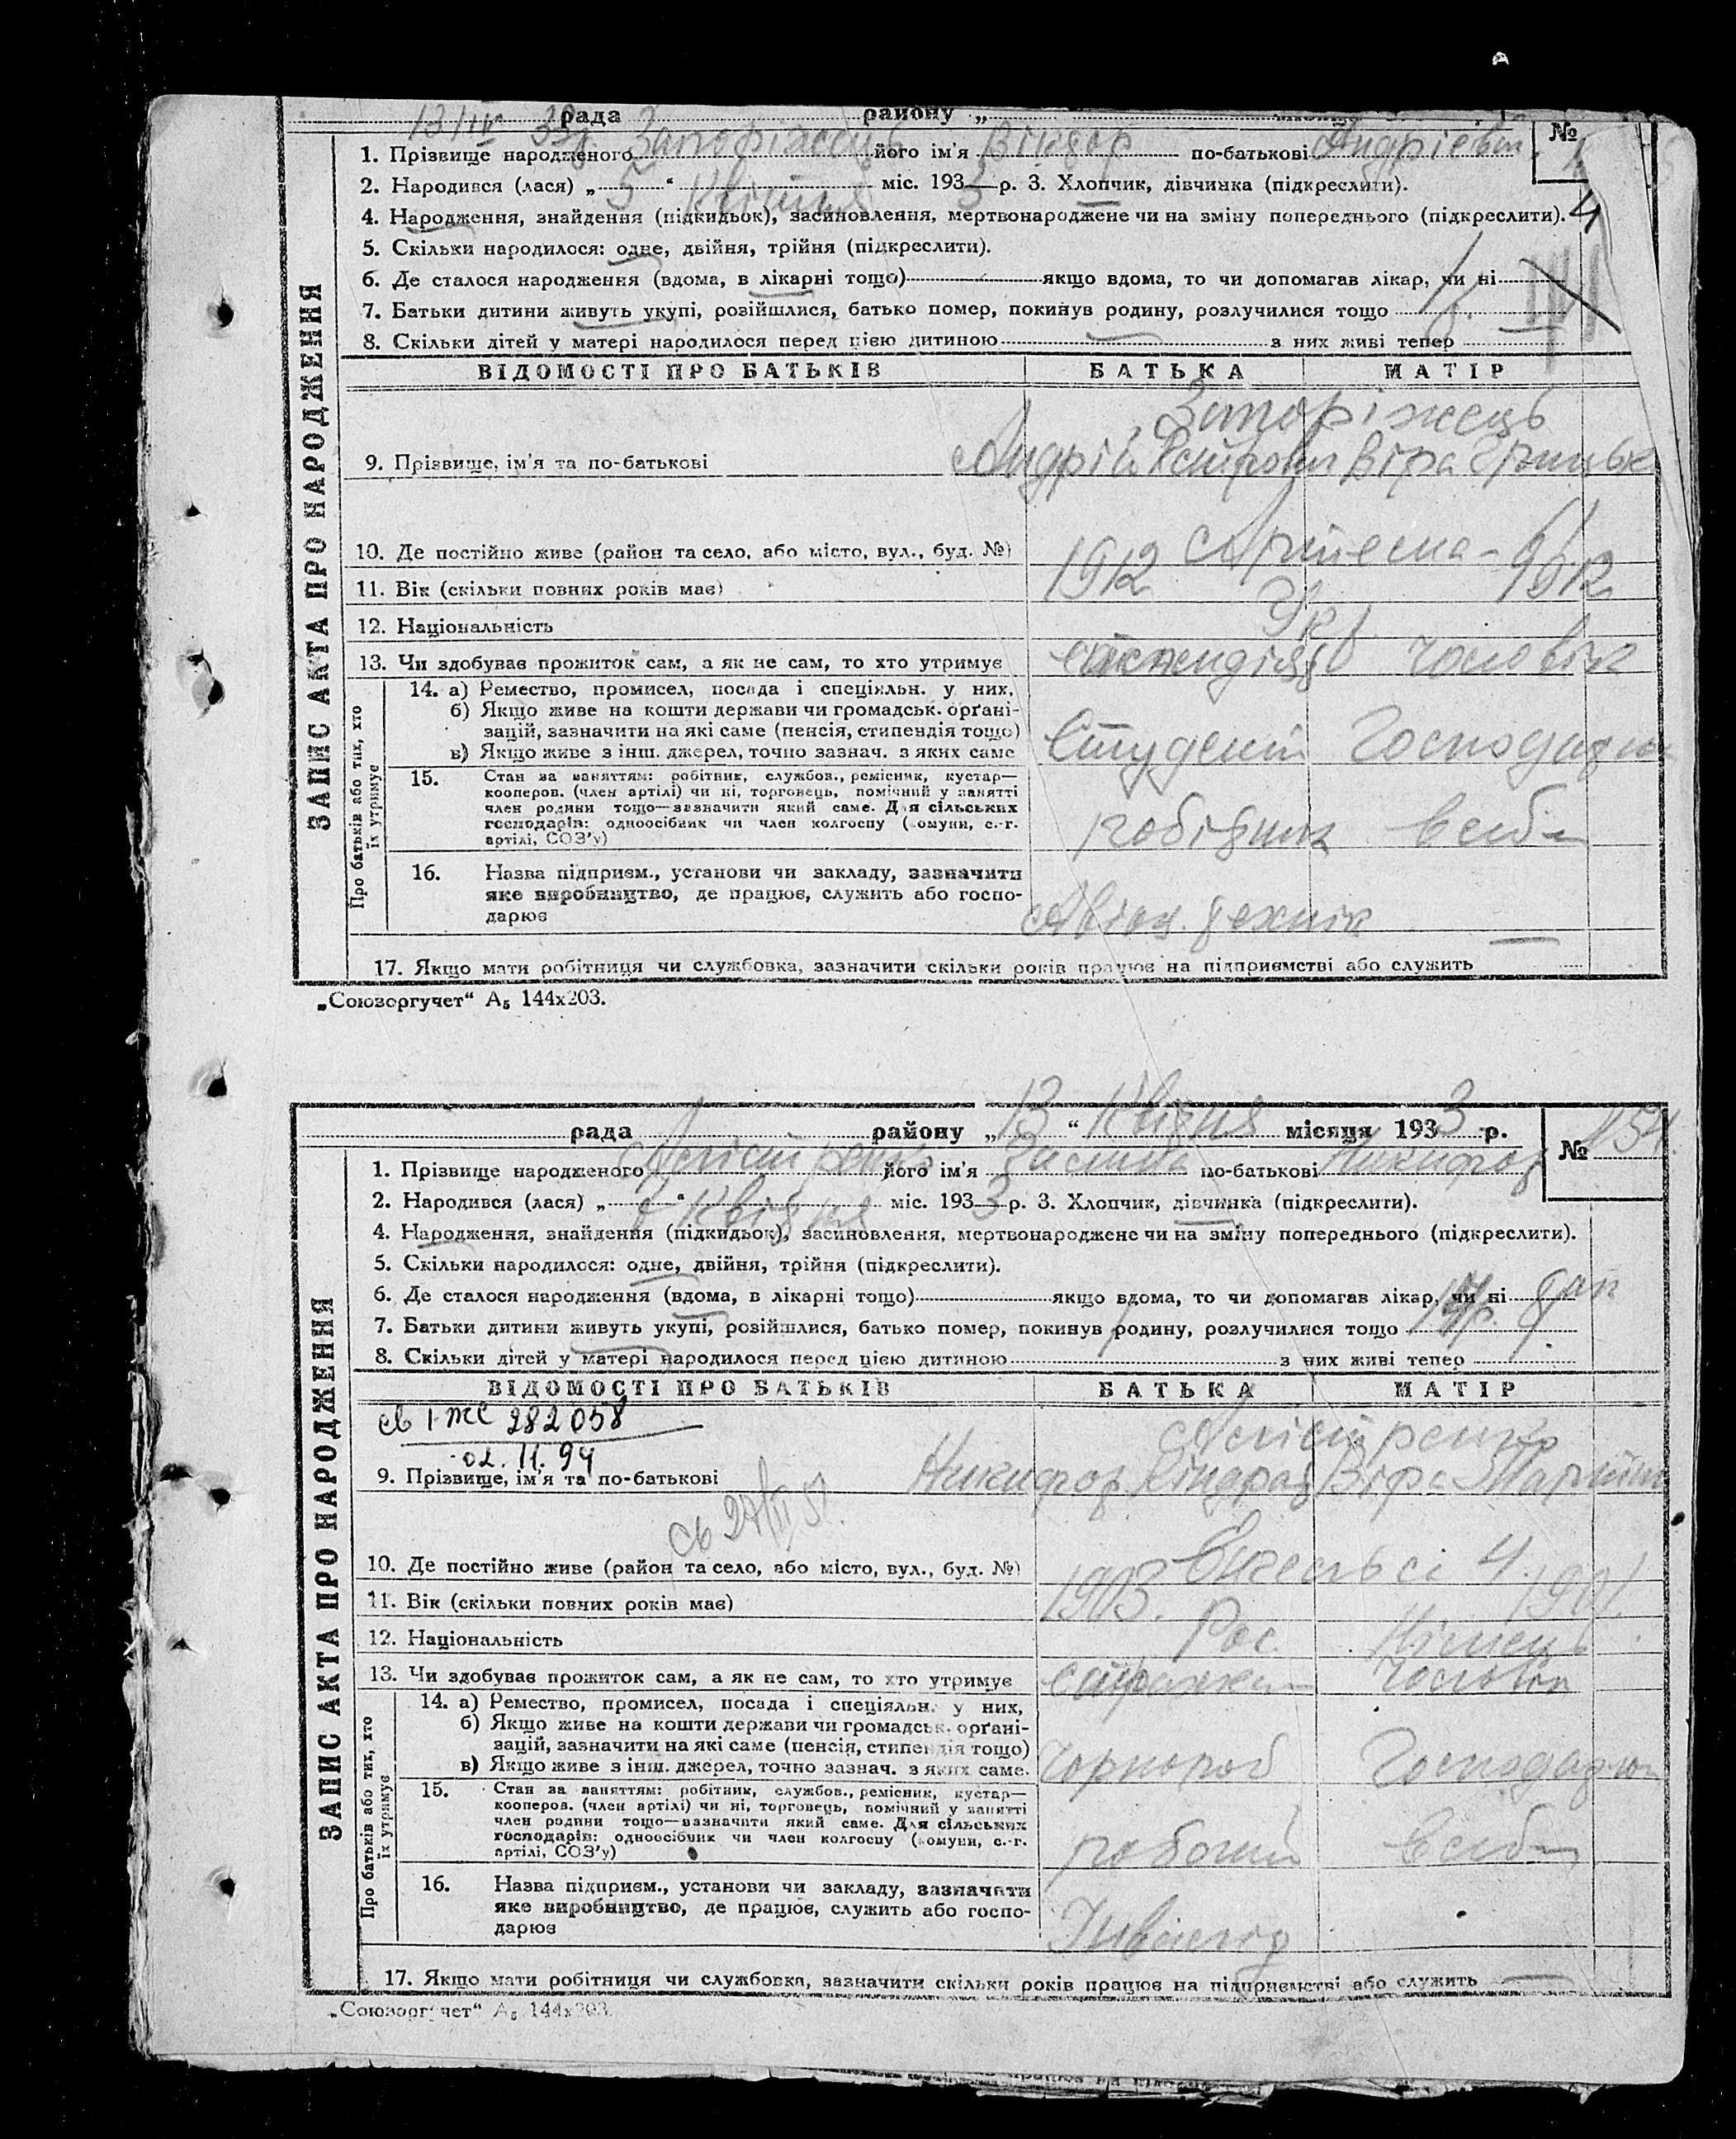 рада району „
13/IV 33 Запоріжець Віктор Андрієв
№
1. Прізвище народженого його ім'я по-батькові
2. Народився (лася) „ 5 “ Квітня міс. 1933 р. 3. Хлопчик, дівчинка (підкреслити).
4. Народження, знайдення (підкидьок), засиновлення, мертвонароджене чи на зміну попереднього (підкреслити).
5. Скільки народилося: одне, двійня, трійня (підкреслити).
6. Де сталося народження (вдома, в лікарні тощо) якщо вдома, то чи допомагав лікар, чи ні
7. Батьки дитини живуть укупі, розійшлися, батько помер, покинув родину, розлучилися тощо
8. Скільки дітей у матері народилося перед цією дитиною з них живі тепер
ЗАПИС АКТА ПРО НАРОДЖЕННЯ
ВІДОМОСТІ ПРО БАТЬКІВ БАТЬКА МАТІР
Запоріжець
9. Прізвище, ім'я та по-батькові Андрій Віра
10. Де постійно живе (район та село, або місто, вул., буд. №)
11. Вік (скільки повних років має) 1912 1912
12. Національність Укр
13. Чи здобував прожиток сам, а як не сам, то хто утримує стипендія чоловік
Про батьків або тих, хто їх утримує
14. а) Ремество, промисел, посада і спеціяльн. у них,
б) Якщо живе на кошти держави чи громадськ. орґані-
зацій, зазначити на які саме (пенсія, стипендія тощо)
в) Якщо живе з інш. джерел, точно зазнач. з яких саме
Студент Господарюв
15. Стан за заняттям: робітник, службов., ремісник, кустар—
кооперов. (член артілі) чи ні, торговець, помічний у занятті
член родини тощо—зазначити який саме. Для сільських
господарів: одноосібник чи член колгоспу (комуни, с.-г.
артілі, СОЗ'у)
робітник
16. Назва підприєм., установи чи закладу, зазначити
яке виробництво, де працює, служить або госпо-
дарює
Авіац. технік
17. Якщо мати робітниця чи службовка, зазначити скільки років працює на підприємстві або служить
„Союзоргучет“ А₅ 144х203.
рада району „ 13 “ Квітня місяця 1933 р.
№ 154
1. Прізвище народженого його ім'я по-батькові Никифор
2. Народився (лася) „ 7 “ Квітня міс. 1933 р. 3. Хлопчик, дівчинка (підкреслити).
4. Народження, знайдення (підкидьок), засиновлення, мертвонароджене чи на зміну попереднього (підкреслити).
5. Скільки народилося: одне, двійня, трійня (підкреслити).
6. Де сталося народження (вдома, в лікарні тощо) якщо вдома, то чи допомагав лікар, чи ні
7. Батьки дитини живуть укупі, розійшлися, батько помер, покинув родину, розлучилися тощо
8. Скільки дітей у матері народилося перед цією дитиною з них живі тепер
ЗАПИС АКТА ПРО НАРОДЖЕННЯ
ВІДОМОСТІ ПРО БАТЬКІВ БАТЬКА МАТІР
св I-ЖС 282058
02.11.94
9. Прізвище, ім'я та по-батькові Никифор Кіндрат Віра Мартин
10. Де постійно живе (район та село, або місто, вул., буд. №)
11. Вік (скільки повних років має) 1903. 1901.
12. Національність Рос. Німець
13. Чи здобував прожиток сам, а як не сам, то хто утримує чоловік
Про батьків або тих, хто їх утримує
14. а) Ремество, промисел, посада і спеціяльн. у них,
б) Якщо живе на кошти держави чи громадськ. орґані-
зацій, зазначити на які саме (пенсія, стипендія тощо)
в) Якщо живе з інш. джерел, точно зазнач. з яких саме.
Чорнороб Господарюв
15. Стан за заняттям: робітник, службов., ремісник, кустар—
кооперов. (член артілі) чи ні, торговець, помічний у занятті
член родини тощо—зазначити який саме. Для сільських
господарів: одноосібник чи член колгоспу (комуни, с.-г.
артілі, СОЗ'у)
робочий
16. Назва підприєм., установи чи закладу, зазначити
яке виробництво, де працює, служить або госпо-
дарює
Інвалід
17. Якщо мати робітниця чи службовка, зазначити скільки років працює на підприємстві або служить
„Союзоргучет“ А₅ 144х203.